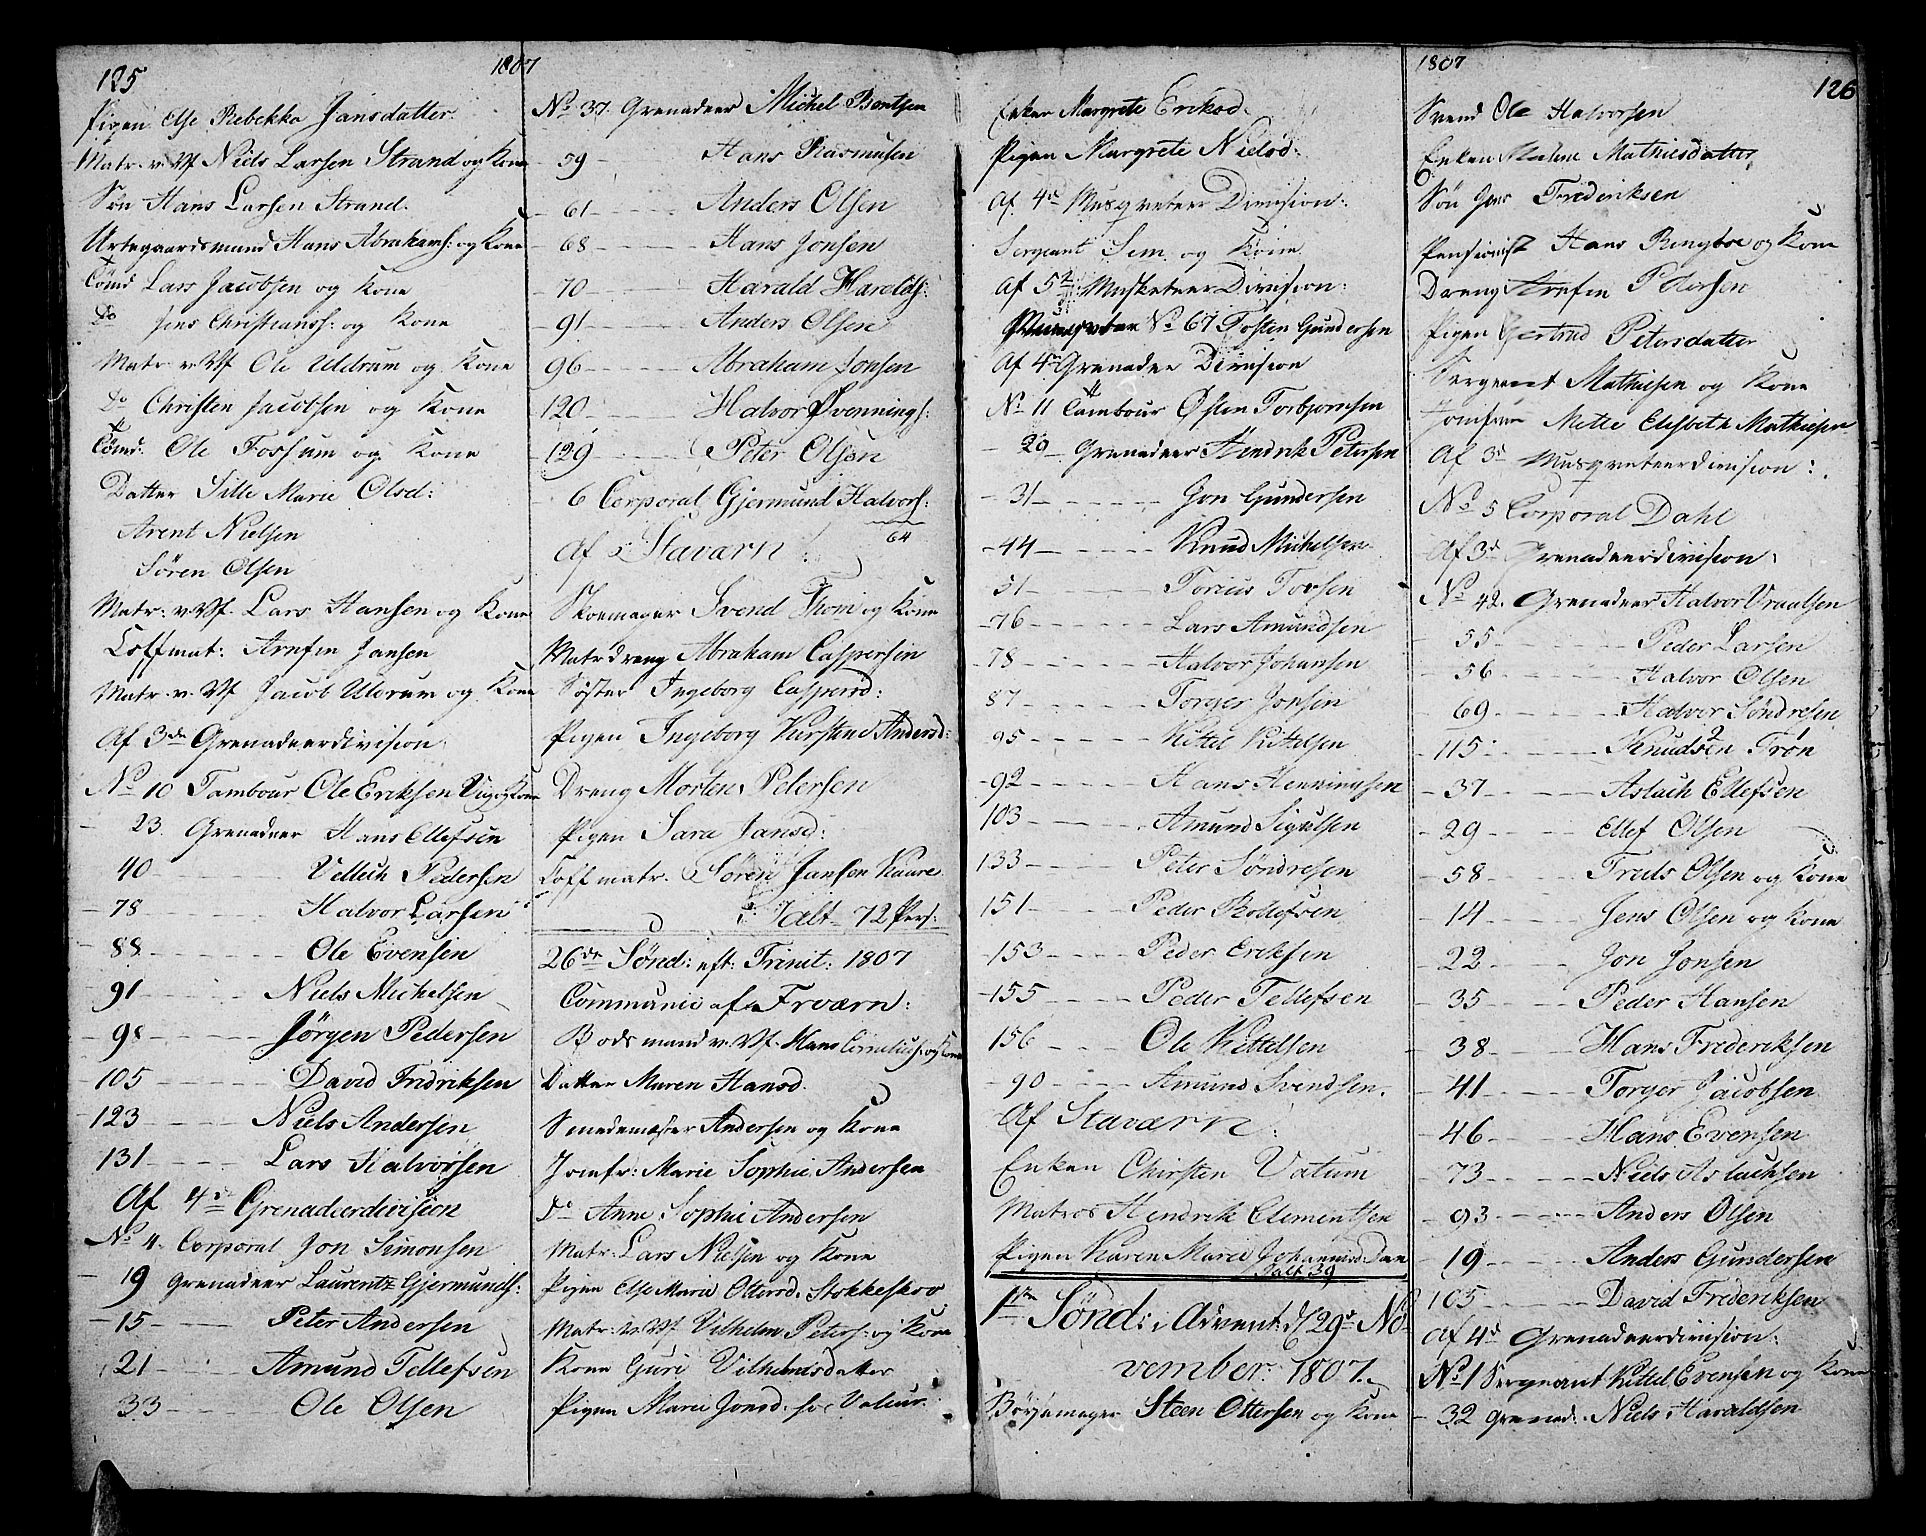 125
1807
Pigen Else Rebekka Jansdatter.
Matr: v. Vf Niels Larsen Strand og Kone
Søn Hans Larsen Strand.
Urtegaardsmand Hans Abrahams: og Kone
Tømd Lars Jacobsen og Kone
Do Jens Christianss: og Kone
Matr: v. Vf Ole Uldrum og Kone
Do Christen Jacobsen og Kone
Tømd: Ole Fossum og Kone
Datter Sille Marie Olsd:
Arent Nielsen
Søren Olsen
Matr: v. Vf. Lars Hansen og Kone
Toffmat: Arnfin Jansen
Matr. v. Vf Jacob Uldrum og Kone
Af 3de Grenadeerdivision:
No 10 Tambour Ole Eriksen Vig og Kone
- 23. Grenadeer Hans Ellefsen
40 Vetleth Pedersen
- 78 Halvor Larsen
- 88 Ole Evensen
91 Niels Michelsen
- 98 Jørgen Pedersen
- 105 David Fridriksen
- 123 Niels Andersen
131 Lars Halvorsen
Af 4de Grenadeerdivision
No 4. Corporal Jon Simonsen
- 19 Grenadeer Laurentz Gjermunds:
- 15 Peter Andersen
21 Amund Tellefsen
33 Ole Olsen
No 37. Grenadeer Michel Bentsen
- 59 Hans Rasmusen
- 61 Anders Olsen
- 68 Hans Jonsen
- 70 Harald Harolds:
- 91 Anders Olsen
96 Abraham Jonsen
- 120 Halvor Svennings:
- 129 Peter Olsen
- 6 Corporal Gjermund Halvors:
64
Af Staværn:
Skoemager Svend Thom og Kone
Matrdreng Abraham Caspersen
Søster Ingeborg Caspersd:
Pigen Ingeborg Kirstine Andersd:
Dreng Morten Pedersen
Pigen Sara Jansd:
Toffmatr. Søren Jansen Kaare
I alt 72 Pers:
26de Sønd: eft: Trinit: 1807
Communic af Fr.værn:
Bodsmand v. Vf. Hans Cornelius: og Kone
Datter Maren Hansd.
Smedemæster Andersen og Kone
Jomfr: Marie Sophie Andersen
Do Anne Sophie Andersen
Matr: Lars Nielsen og Kone
Pigen Else Marie Ottersd. Stokkeskov
Matr: v. Vf Vilhelm Peters: og Kone
Kone Guri Vilhelmsdatter
Pigen Marie Jonsd: hos Valeur.
Enken Margrete Eriksd.
Pigen Margrete Nielsd:
Af 4de Musqveteer Division:
Sergeant Sem og Kone
Af 5te Musketeer Division:
Musqveteer No 67 Tosten Gundersen
Af 4de Grenadeer Division
No 11 Tambour Østen Torbjørnsen
- 29 Grenadeer Hendrik Petersen
- 31 Jon Gundersen
- 44 Knud Michelsen
51 Torius Tovsen
- 76 Lars Amundsen
- 78 Halvor Johansen
87 Torger Jonsen
95 Kittel Kittelsen
- 92 Hans Henningsen
103 Amund Sigulsen
133 Peter Søndresen
151 Peder Rollefsen
- 153 Peder Eriksen
- 155 Peder Tellefsen
156 Ole Kittelsen
- 90 Amund Svendsen.
Af Staværn:
Enken Chirsten Vatum
Matros Hendrik Clementsen
Pigen Karen Marie Johannesd: Dan
I alt 39
1ste Sønd: i Advent: d 29de No-
vember. 1807.
Børsemager Steen Ottersen og Kone
1807
126
Svend Ole Halvorsen
Enken Malene Mathiesdatter
Søn Jens Frederiksen
Pensionist Hans Ringboe og Kone
Dreng Arnfin Petersen
Pigen Gertrud Petersdatter
Sergeant Mathiesen og Kone
Jomfrue Mette Elisbeth Mathiesen
Af 3de Musqveteerdivision:
No 5 Corporal Dahl
Af 3de Grenadeerdivision:
No 42. Grenadeer Halvor Vraalsen
- 55 Peder Larsen
- 56 Halvor Olsen
- 69 Halvor Søndresen
- 115 Knudsen Trøn
- 37 Aslach Ellefsen
- 29 Ellef Olsen
- 58 Truls Olsen og Kone
- 14 Jens Olsen og Kone
- 22 Jon Jonsen
- 35 Peder Hansen
- 38 Hans Frederiksen
- 41 Torger Jacobsen
- 46 Hans Evensen
- 73 Niels Aslachsen
- 93 Anders Olsen
- 19 Anders Gundersen
105 David Frederiksen
Af 4de Grenadeerdivision:
No 1 Sergeant Kittel Evensen og Kone
- 32 Grenad: Niels Haraldsen